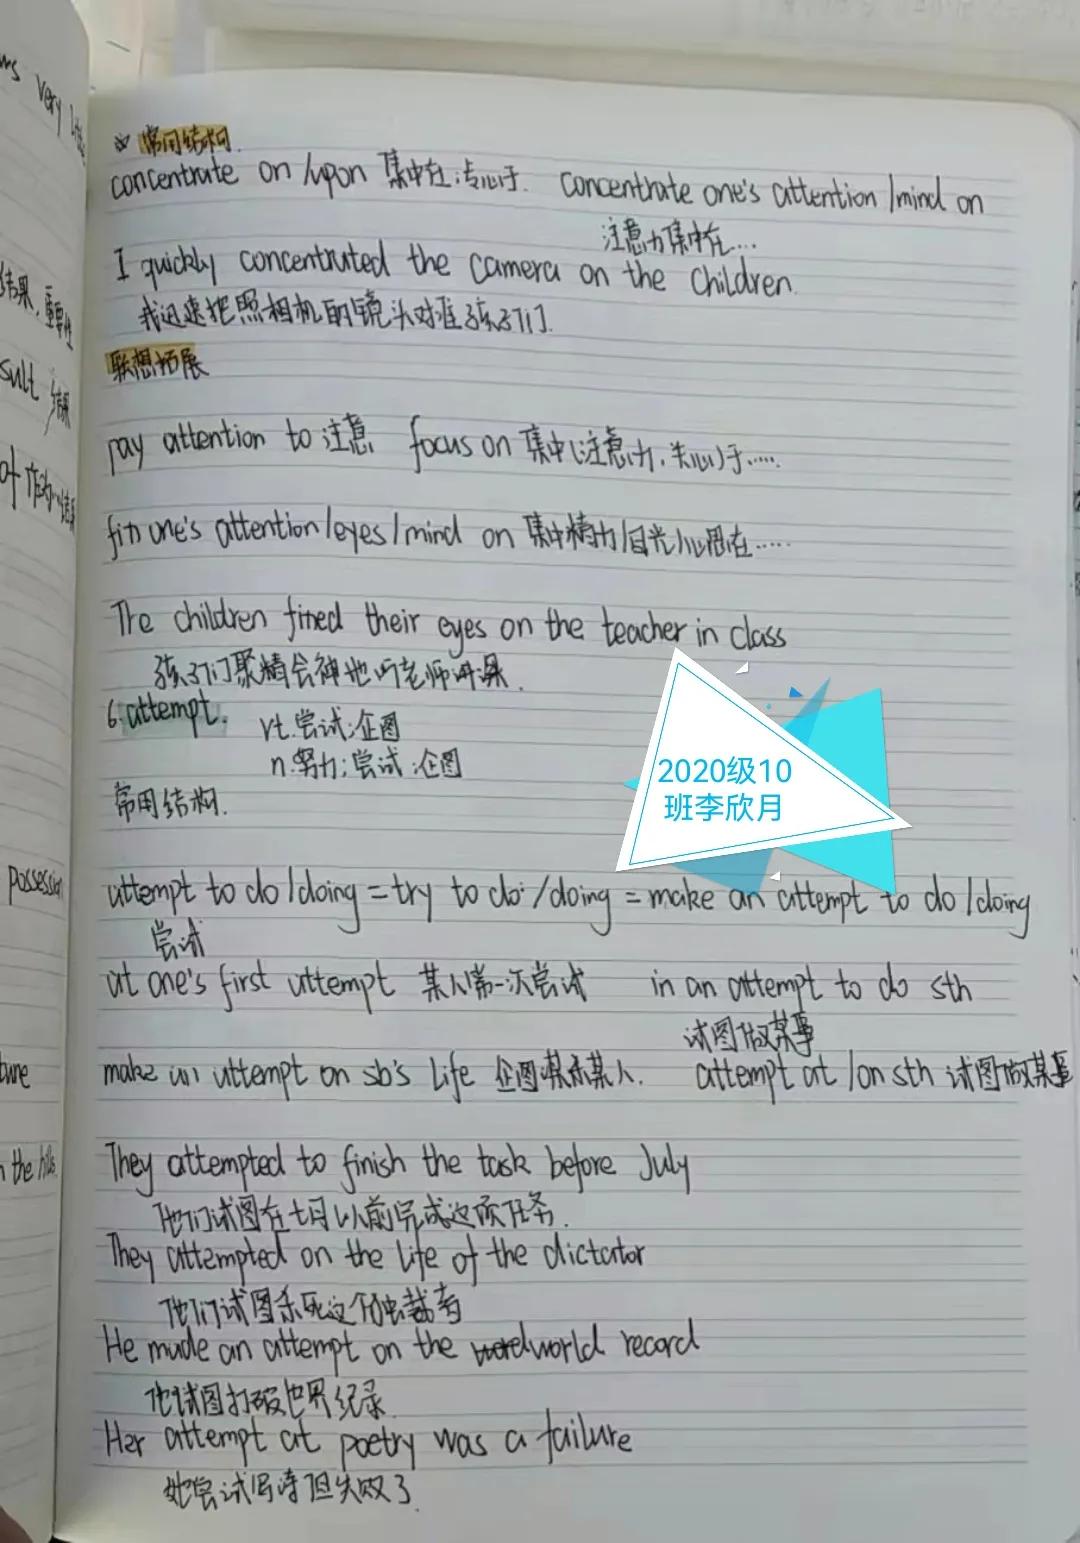 ws very little
☆ 常用结构.
concentrate on /upon 集中在;专心于. concentrate one's attention /mind on
注意力集中在...
I quickly concentrated the camera on the children.
我迅速把照相机的镜头对准孩子们.
结果,重要性
联想拓展
sult 结果
pay attention to 注意 focus on 集中(注意力,关心)于.....
of 作为…结果
fix one's attention/eyes/mind on 集中精力/目光/心思在.....
The children fixed their eyes on the teacher in class
孩子们聚精会神地听老师讲课.
6. attempt. vt.尝试;企图
n.努力;尝试;企图
2020级10
班李欣月
常用结构.
possession
attempt to do /doing = try to do /doing = make an attempt to do /doing
尝试
at one's first attempt 某人第一次尝试 in an attempt to do sth
试图做某事
ture
make an attempt on sb's life 企图谋杀某人. attempt at /on sth 试图做某事
They attempted to finish the task before July
n the hills.
他们试图在七月以前完成这项任务.
They attempted on the life of the dictator
他们试图杀死这个独裁者
He made an attempt on the world record
他试图打破世界纪录
Her attempt at poetry was a failure
她尝试写诗但失败了.